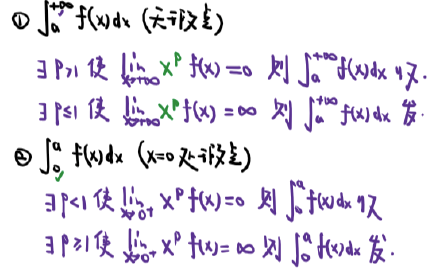 ① ∫ₐ^{+∞} f(x)dx (无瑕点)
∃ P>1 使 lim_{x→+∞} x^P f(x) = 0 则 ∫ₐ^{+∞} f(x)dx 收.
∃ P≤1 使 lim_{x→+∞} x^P f(x) = ∞ 则 ∫ₐ^{+∞} f(x)dx 发.
② ∫₀^a f(x)dx (x=0处瑕点)
∃ P<1 使 lim_{x→0⁺} x^P f(x) = 0 则 ∫₀^a f(x)dx 收
∃ P≥1 使 lim_{x→0⁺} x^P f(x) = ∞ 则 ∫₀^a f(x)dx 发.